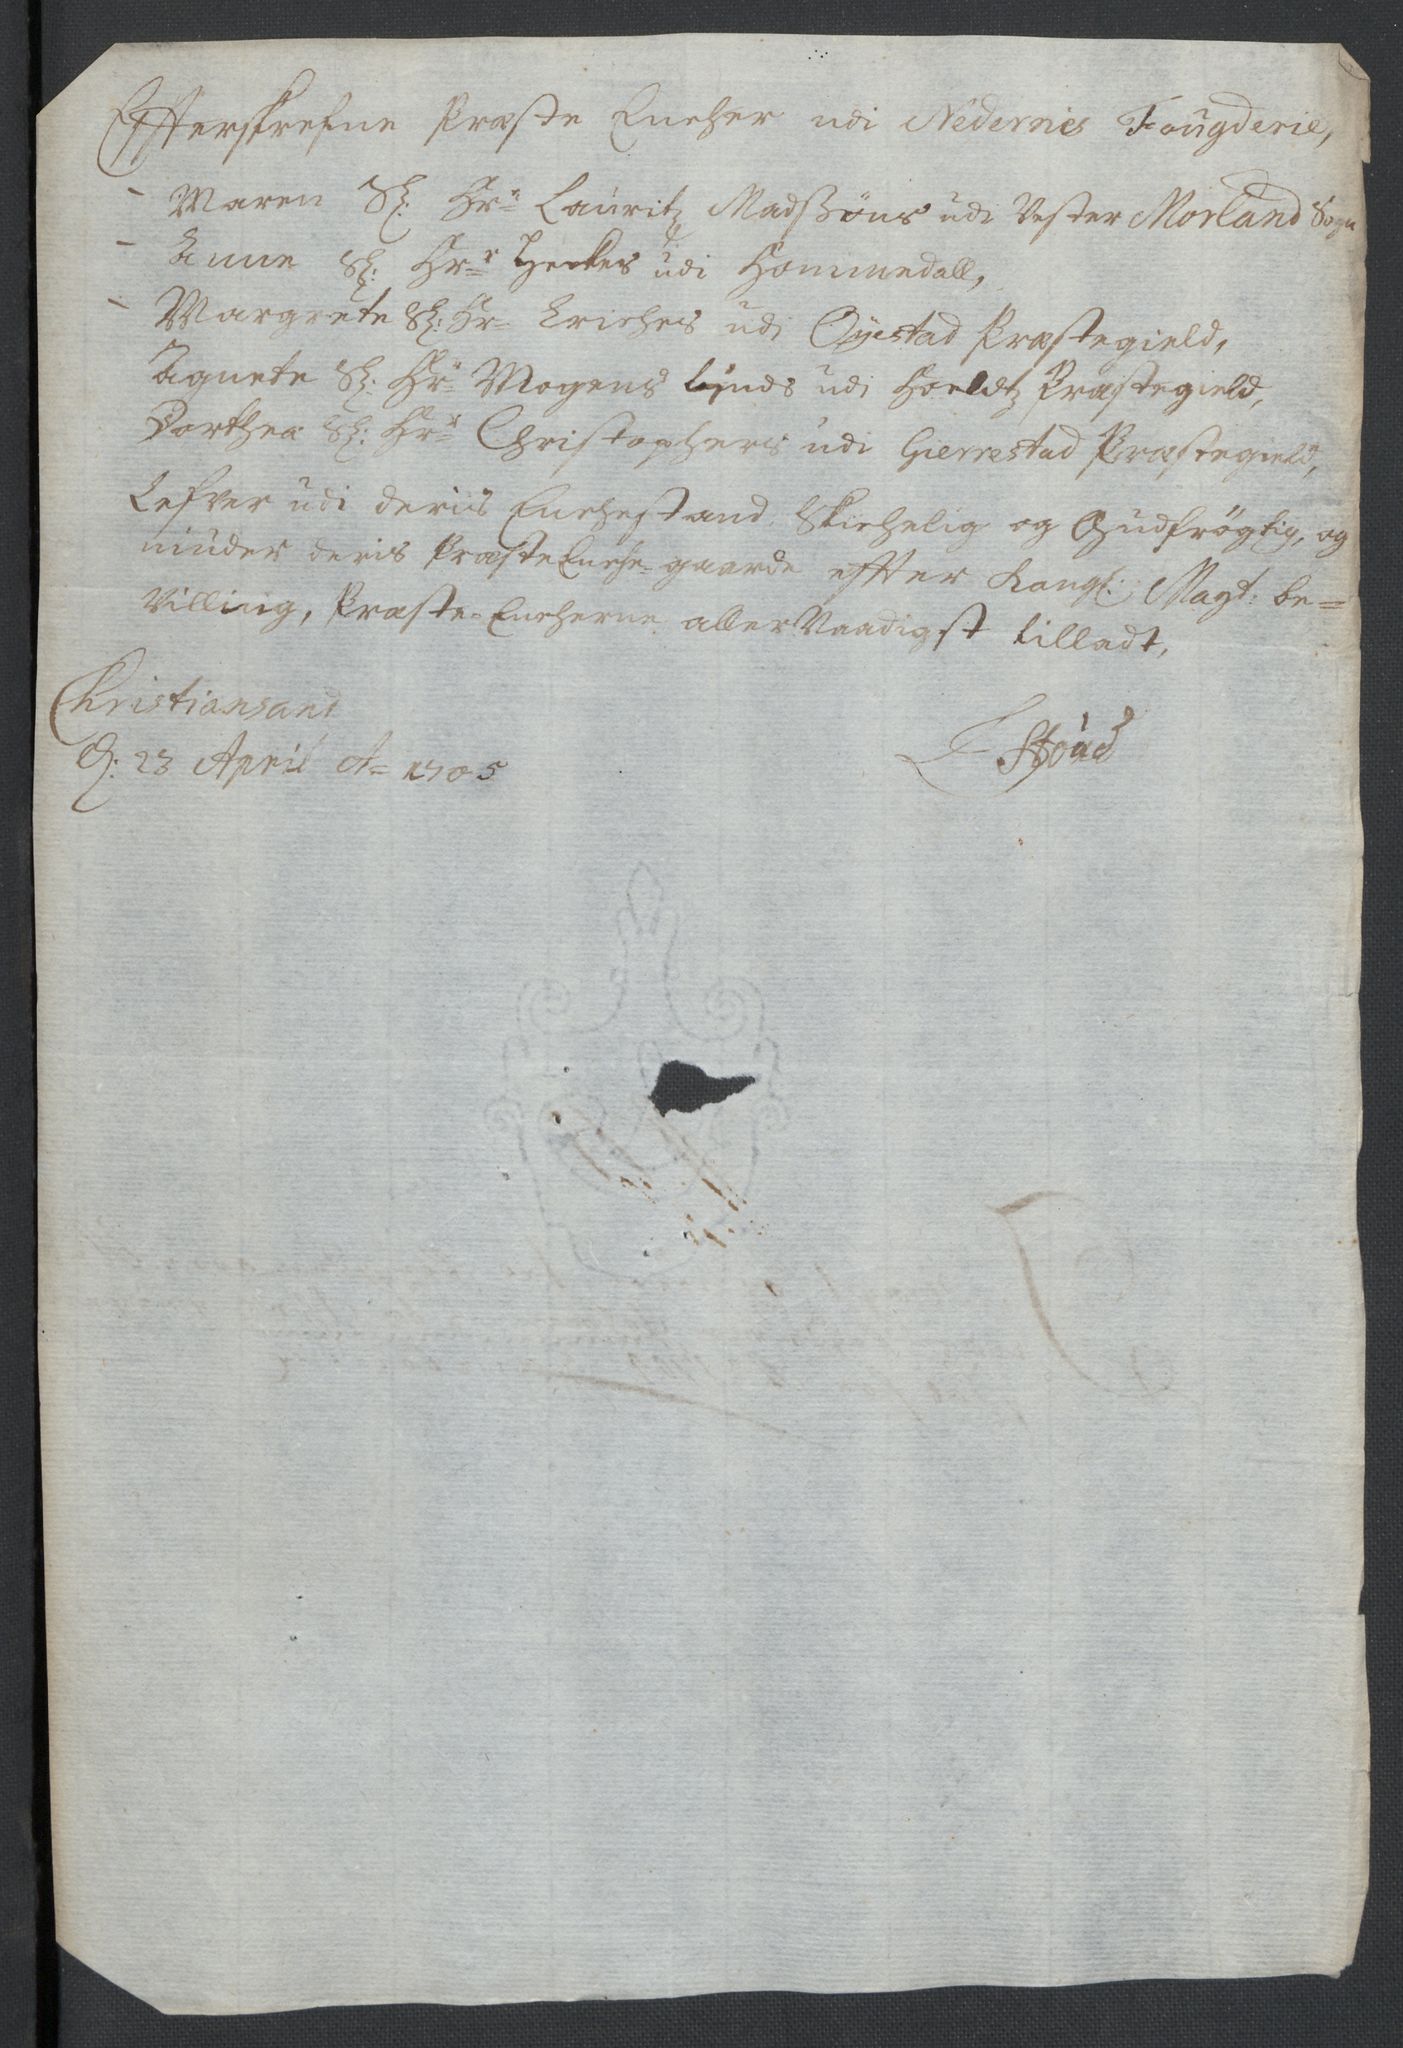 Effterskrefne Præste Encher udi Nedernes Fougderie,
- Maren Sl: Hr: Lauritz Madssøns udi Vester Morland Sogn
- Anne Sl: Hr: udi Hommedall,
- Margrete Sl: Hr: Erichs udi Øyestad Præstegield,
Agnete Sl: Hr: Mogens Lunds udi Holdtz Præstegield,
Dorthea Sl: Hr: Christophers udi Gierrestad Præstegield,
Lefver udi deris Enchestand Skichelig og Gudfrøgtig, og
niuder deris Præste Enche-gaarde effter Kongl: Mayt: be=
villing, Præste-Encherne aller Naadigst tilladt,
Christiansand
d: 23 April Ao 1705
Stoud